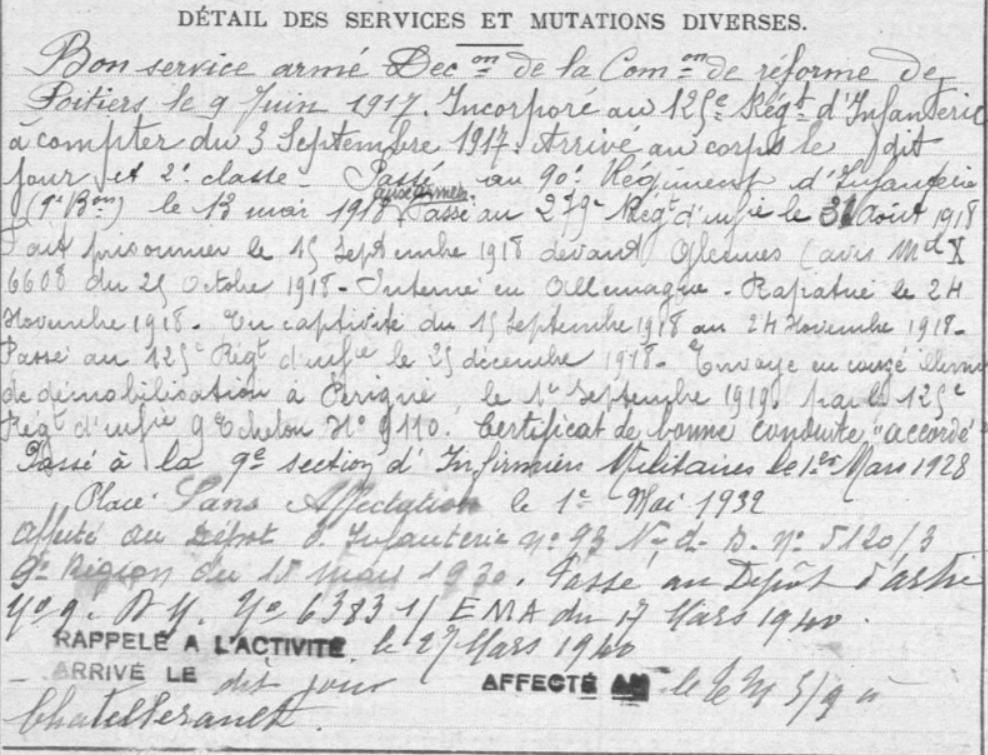 DÉTAIL DES SERVICES ET MUTATIONS DIVERSES.
Bon service armé Dec on de la Com on de réforme de
Poitiers le 9 Juin 1917. Incorporé au 125e Régt d'Infanterie
à compter du 3 Septembre 1917. Arrivé au corps le dit
jour et 2e classe - Passé au 90e Régiment d'Infanterie
(9e Bon) le 13 mai 1918 aux armées. Passé au 279e Régt d'infie le 31 Août 1918
Fait prisonnier le 15 Septembre 1918 devant (avis Mel X
6608 du 25 Octobre 1918 - Interné en Allemagne - Rapatrié le 24
Novembre 1918 - En captivité du 15 Septembre 1918 au 24 Novembre 1918 -
Passé au 125e Régt d'infie le 25 décembre 1918 - Envoyé en congé illimité
de démobilisation à Périgné, le 1er Septembre 1919, par le 125e
Régt d'infie 9 Echelon No 9110. Certificat de bonne conduite "accordé"
Passé à la 9e section d'Infirmiers Militaires le 1er Mars 1928
Placé Sans Affectation le 1e Mai 1932
Affecté au Dépôt d'Infanterie no 93 N. d. S. no 5120/3
9e Région du 15 mars 1930. Passé au Dépôt d'artie
No 9. D.M. No 6383 1/EMA du 17 Mars 1940.
RAPPELÉ A L'ACTIVITÉ le 27 Mars 1940
- ARRIVÉ LE dit jour AFFECTÉ AU
Chatellerault.